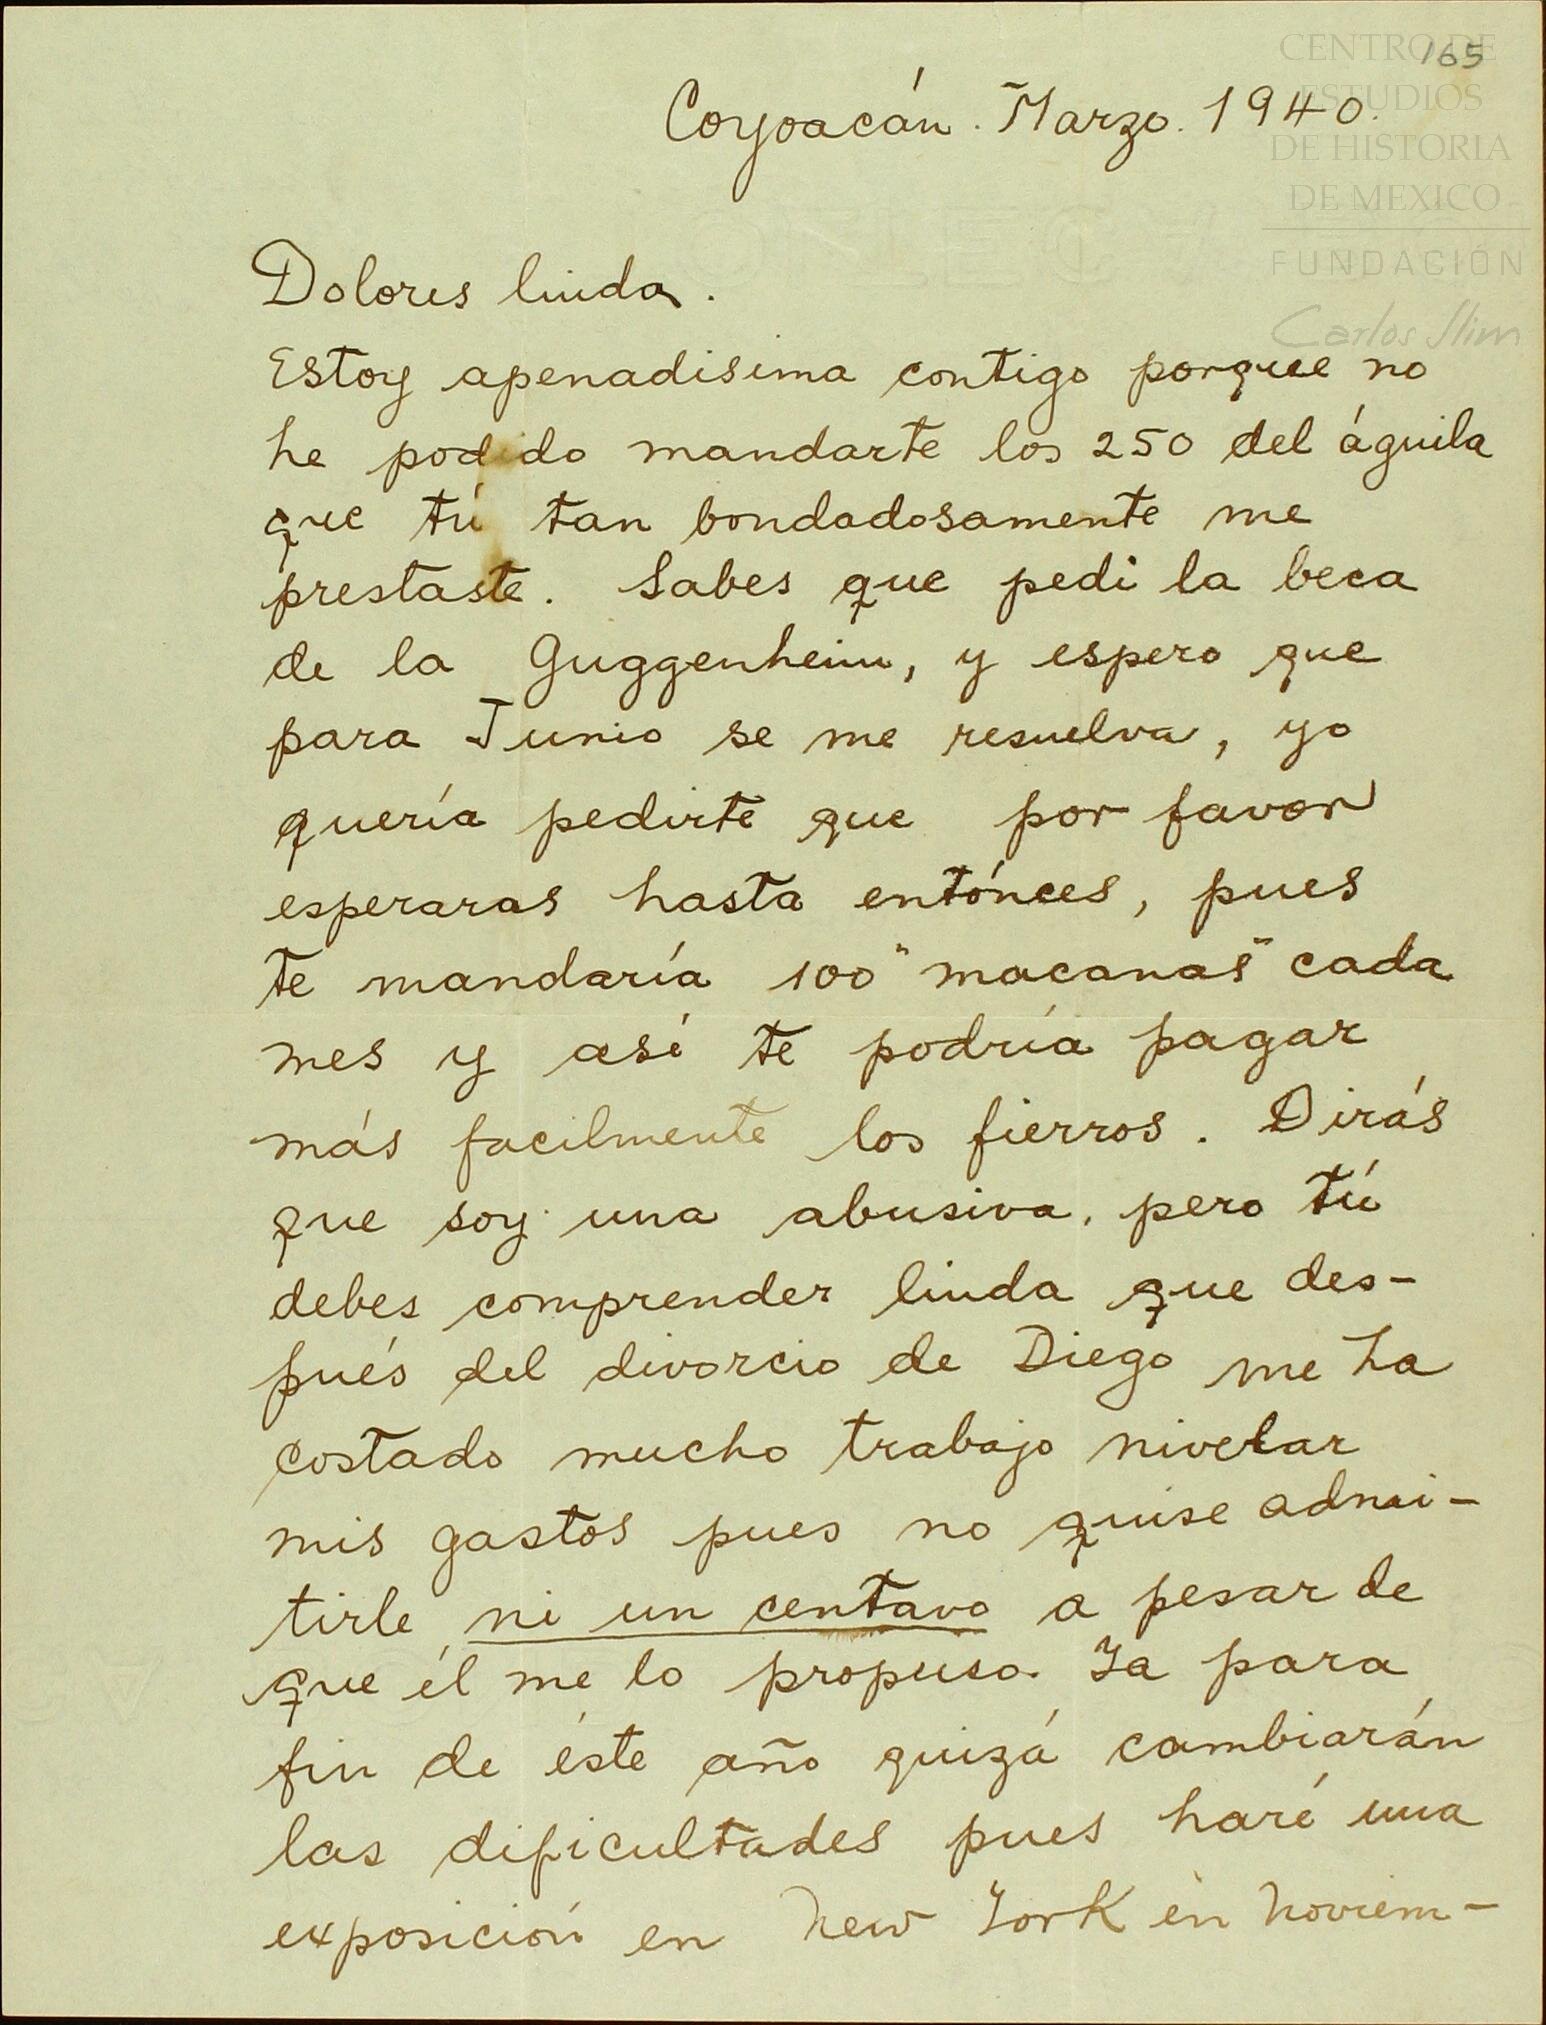 165
CENTRO DE
ESTUDIOS
DE HISTORIA
DE MEXICO
FUNDACIÓN
Carlos Slim
Coyoacán. Marzo. 1940.
Dolores linda.
Estoy apenadisima contigo porque no
he podido mandarte los 250 del águila
que tú tan bondadosamente me
prestaste. Sabes que pedi la beca
de la Guggenheim, y espero que
para Junio se me resuelva, yo
quería pedirte que por favor
esperaras hasta entónces, pues
te mandaría 100 "macanas" cada
mes y asi te podría pagar
más facilmente los fierros. Dirás
que soy una abusiva, pero tú
debes comprender linda que des-
pués del divorcio de Diego me ha
costado mucho trabajo nivelar
mis gastos pues no quise admi-
tirle ni un centavo a pesar de
que él me lo propuso. Ya para
fin de éste año quizá cambiarán
las dificultades pues haré una
exposición en New York en Noviem-